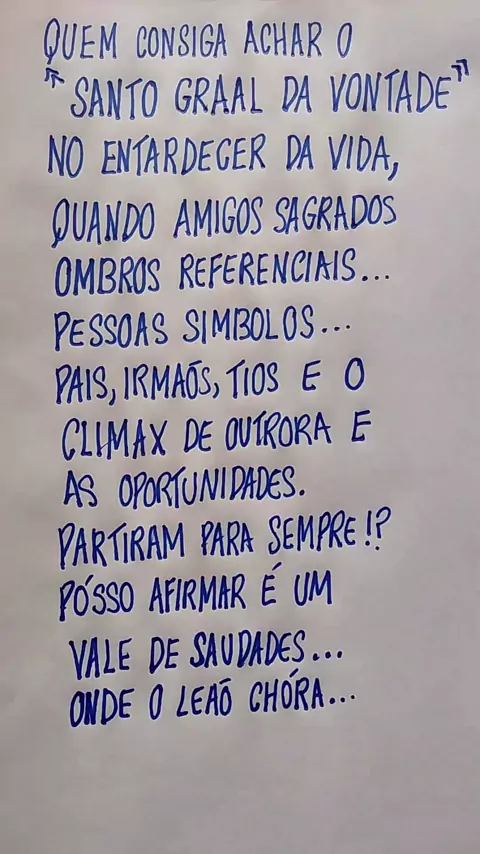 QUEM CONSIGA ACHAR O
"SANTO GRAAL DA VONTADE"
NO ENTARDECER DA VIDA,
QUANDO AMIGOS SAGRADOS
OMBROS REFERENCIAIS...
PESSOAS SIMBOLOS...
PAIS, IRMAÕS, TIOS E O
CLIMAX DE OUTRORA E
AS OPORTUNIDADES.
PARTIRAM PARA SEMPRE!?
PÓSSO AFIRMAR É UM
VALE DE SAUDADES...
ONDE O LEAÕ CHÓRA...